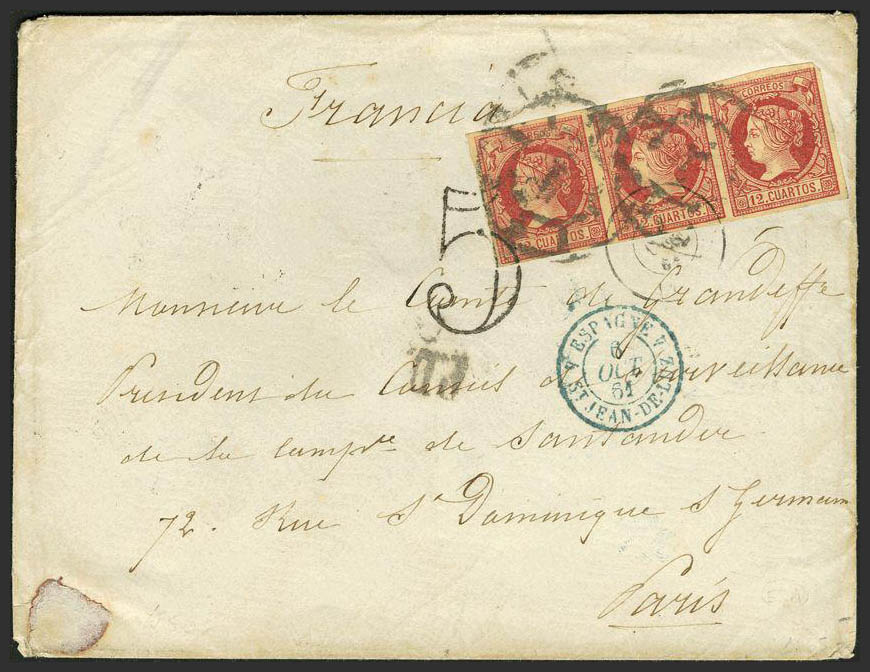 Francia
CORREOS
12 CUARTOS.
CUARTOS.
CUARTOS.
5
Monsieur le Comte de Grandeffe
ESPAGNE
6
OCT
61
ST JEAN-DE-LUZ
President du Conseil de Surveillance
de la Compie de Santander
72. Rue St Dominique St Germain
Paris